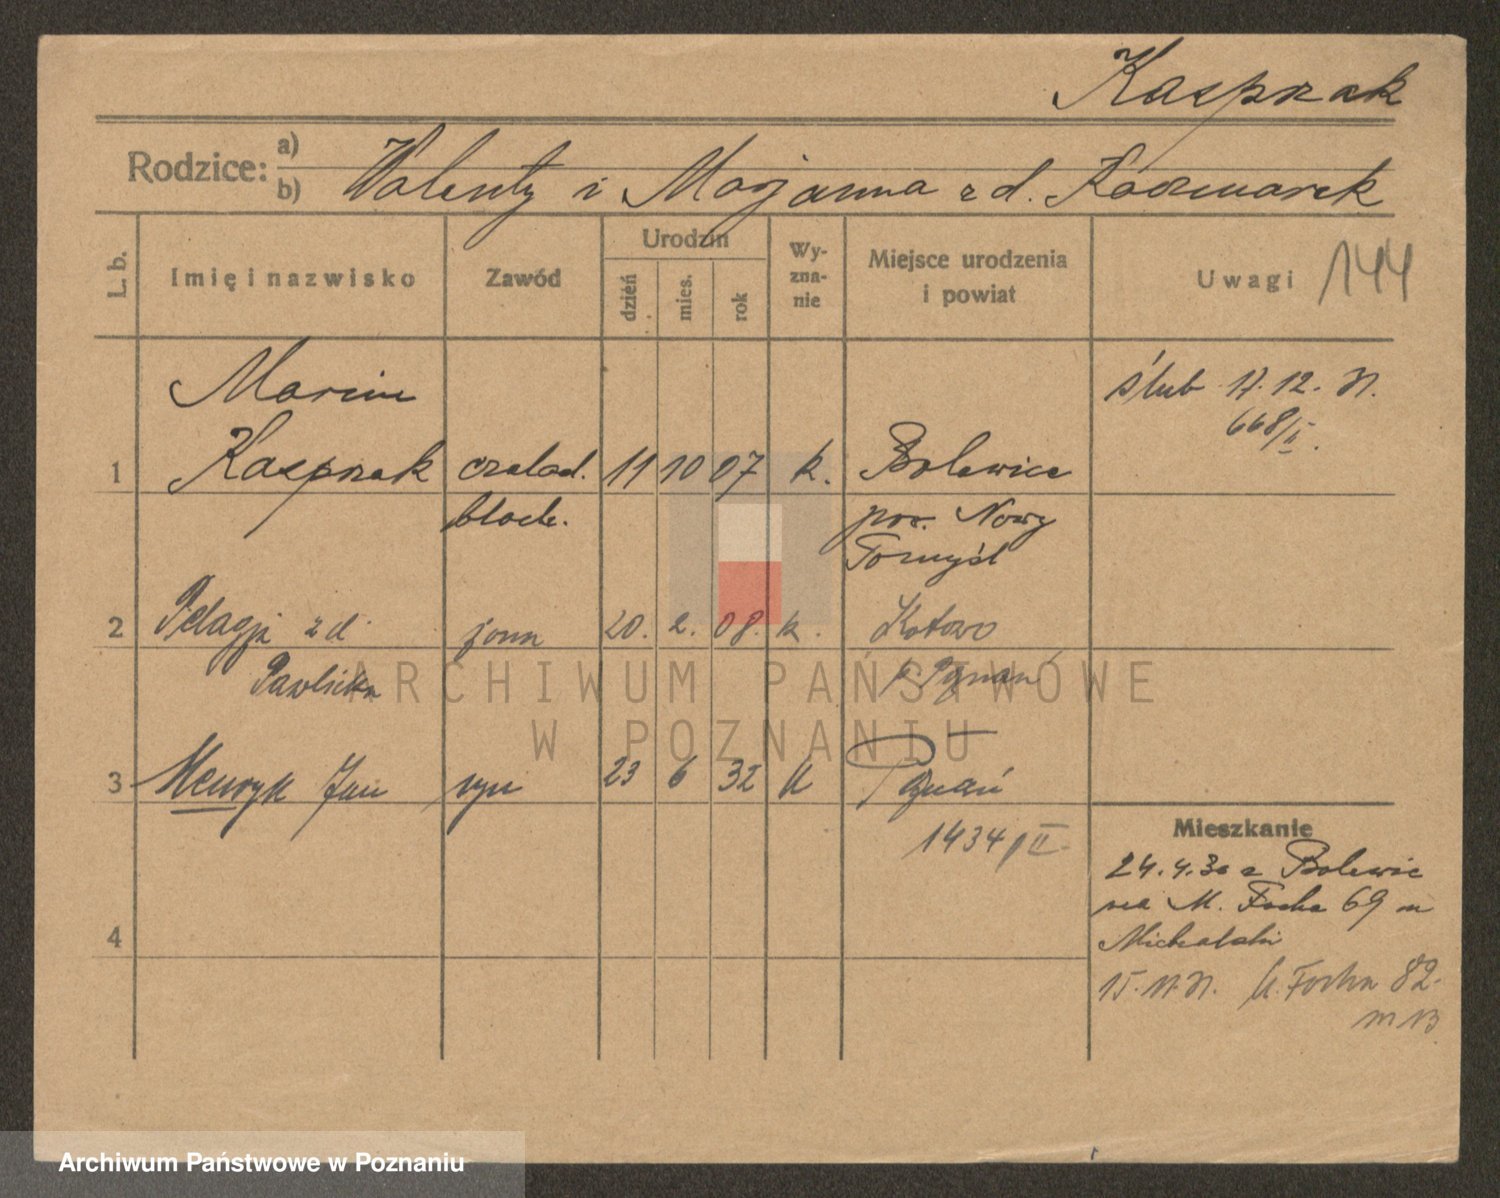 Kasprzak
Rodzice: a)
b) Walenty i Marjanna z d. Kaczmarek
L. b. Imię i nazwisko Zawód Urodzin dzień mies. rok Wyznanie Miejsce urodzenia i powiat Uwagi 144
Marcin
1 Kasprzak czelad. 11 10 07 k. Bolewice
blach. pow. Nowy
Tomyśl
ślub 17. 12. 31.
668/II.
2 Pelagja z d. żona 20. 2. 08. k. Kotowo
Pawlicka p. Poznań
3 Henryk Jan syn 23 6 32 k Poznań
1434/II
4
Mieszkanie
24.4.30 z Bolewic
na M. Focha 69 m
Michalski
15.11.31. M. Focha 82.
m 13
ARCHIWUM PAŃSTWOWE
W POZNANIU
Archiwum Państwowe w Poznaniu